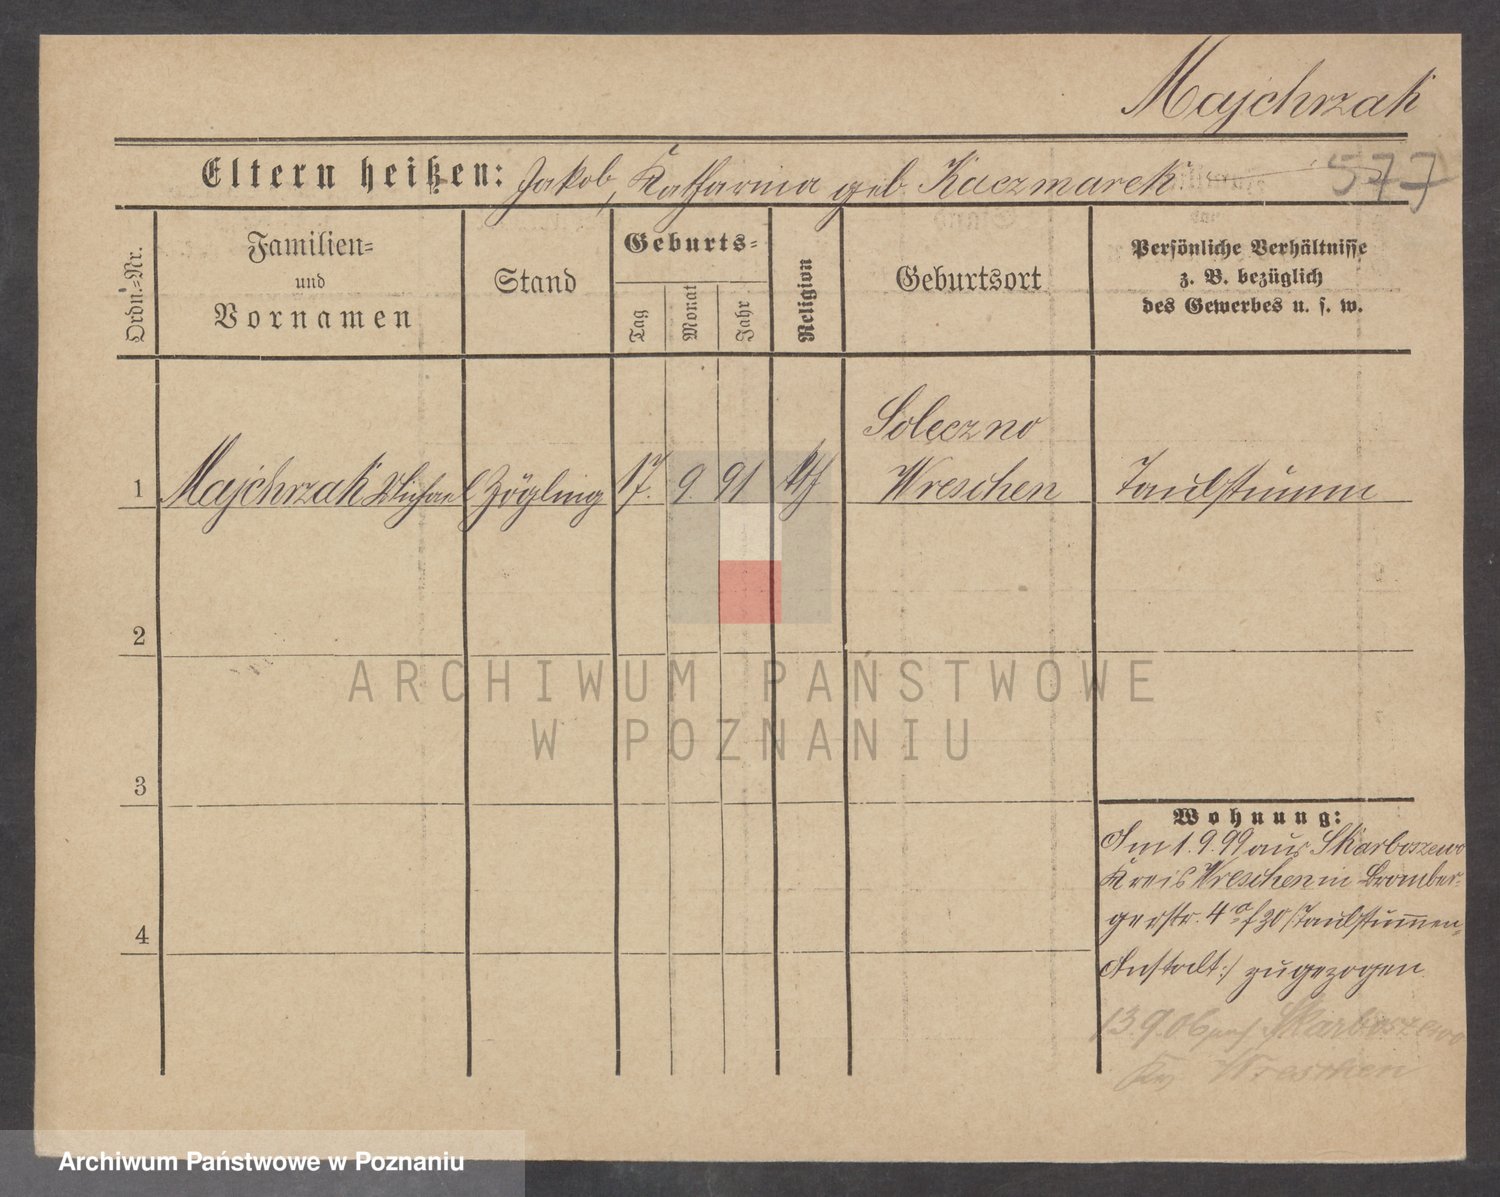 Majchrzak
Eltern heißen: Jakob, Katharina geb. Kaczmarek
577
Ordn.-Nr.
Familien-
und
Vornamen
Stand
Geburts-
Tag
Monat
Jahr
Religion
Geburtsort
Persönliche Verhältnisse
z. B. bezüglich
des Gewerbes u. s. w.
Soleczno
1 Majchrzak Michael Zögling 17. 9. 91 kth Wreschen Taubstumm
2
ARCHIWUM PAŃSTWOWE
W POZNANIU
3
Wohnung:
Am 1.9.99 aus Skarboszewo
Kreis Wreschen in Bromber-
gerstr. 4a /Taubstummen-
Anstalt:/ zugezogen
4
13.9.06 auf Skarboszewo
Kr Wreschen
Archiwum Państwowe w Poznaniu